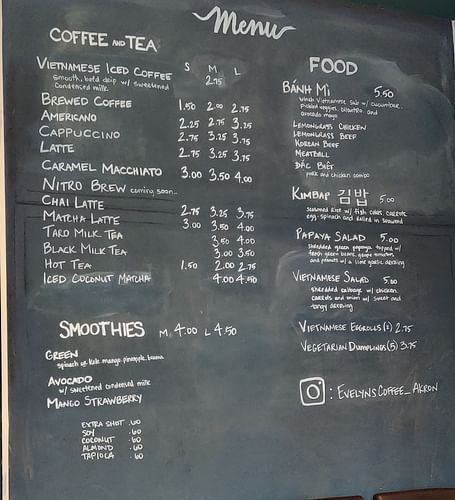 Menu
COFFEE AND TEA
S M L
VIETNAMESE ICED COFFEE 2.75
smooth, bold drip w/ sweetened
condensed milk
BREWED COFFEE 1.50 2.00 2.75
AMERICANO 2.25 2.75 3.25
CAPPUCCINO 2.75 3.25 3.75
LATTE 2.75 3.25 3.75
CARAMEL MACCHIATO 3.00 3.50 4.00
NITRO BREW coming soon...
CHAI LATTE 2.75 3.25 3.75
MATCHA LATTE 3.00 3.50 4.00
TARO MILK TEA 3.50 4.00
BLACK MILK TEA 3.00 3.50
HOT TEA 1.50 2.00 2.75
ICED COCONUT MATCHA 4.00 4.50
SMOOTHIES M 4.00 L 4.50
GREEN
spinach or kale, mango, pineapple, banana
AVOCADO
w/ sweetened condensed milk
MANGO STRAWBERRY
EXTRA SHOT .60
SOY .60
COCONUT .60
ALMOND .60
TAPIOCA .60
FOOD
BÁNH MÌ 5.50
Vietnamese sub w/ cucumber,
pickled veggies, cilantro, and
avocado mayo
LEMONGRASS CHICKEN
LEMONGRASS BEEF
KOREAN BEEF
MEATBALL
ĐẶC BIỆT
pork and chicken combo
KIMBAP 김밥 5.00
seasoned rice w/ fish cakes, carrots,
egg, spinach and rolled in seaweed
PAPAYA SALAD 5.00
shredded green papaya topped w/
fresh green beans, grape tomatoes,
and peanuts w/ a lime garlic dressing
VIETNAMESE SALAD 5.00
shredded cabbage w/ chicken,
carrots and onion w/ sweet and
tangy dressing
VIETNAMESE EGGROLLS (2) 2.75
VEGETARIAN DUMPLINGS (5) 3.75
: EVELYNSCOFFEE_AKRON